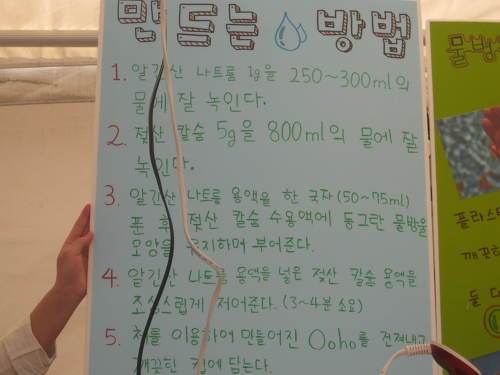 만드는 방법
1. 알긴산 나트륨 1g을 250~300ml의
물에 잘 녹인다.
2. 젖산 칼슘 5g을 800ml의 물에 잘
녹인다.
3. 알긴산 나트륨 용액을 한 국자 (50~75ml)
푼 후 젖산 칼슘 수용액에 동그란 물방울
모양을 유지하며 부어준다.
4. 알긴산 나트륨 용액을 넣은 젖산 칼슘 용액을
조심스럽게 저어준다. (3~4분 소요)
5. 체를 이용하여 만들어진 Ooho를 건져내고
깨끗한 컵에 담는다.
물방
플라스틱
깨끗한
둘 다